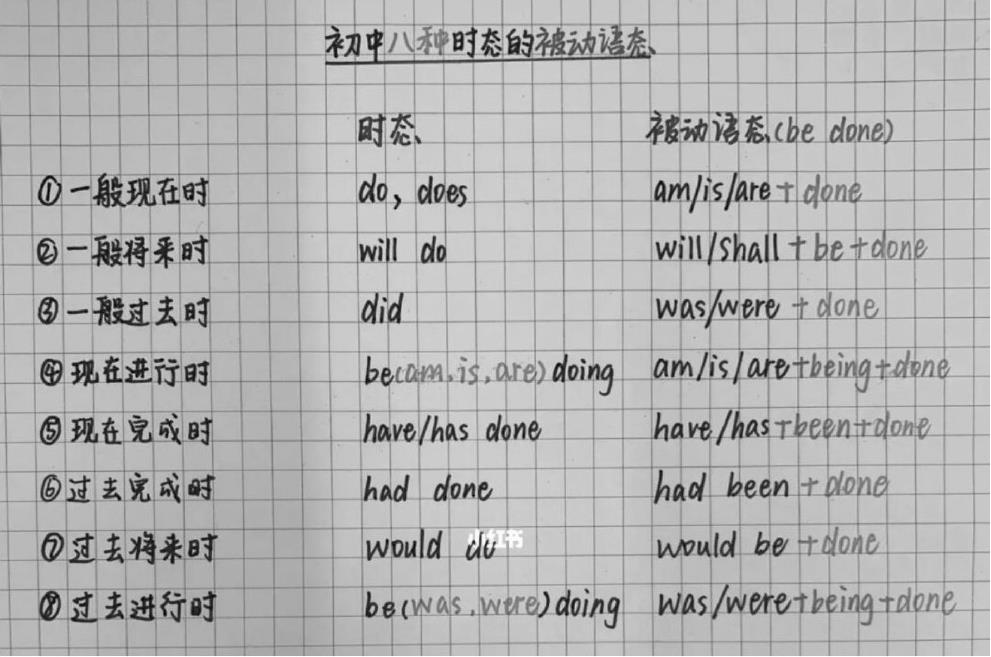 初中八种时态的被动语态
时态 被动语态(be done)
①一般现在时 do, does am/is/are + done
②一般将来时 will do will/shall + be + done
③一般过去时 did was/were + done
④现在进行时 be(am,is,are)doing am/is/are+being+done
⑤现在完成时 have/has done have/has+been+done
⑥过去完成时 had done had been + done
⑦过去将来时 would do would be + done
小红书
⑧过去进行时 be(was,were)doing was/were+being+done